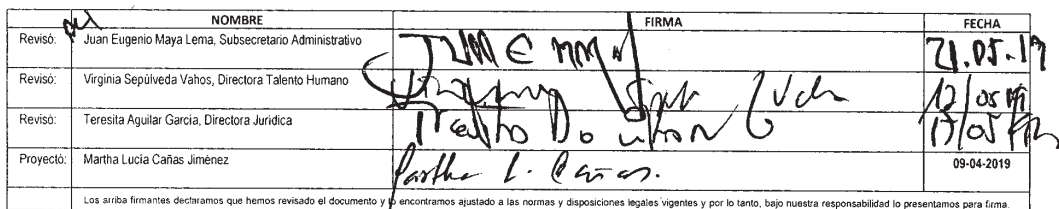 NOMBRE FIRMA FECHA
Revisó: Juan Eugenio Maya Lema, Subsecretario Administrativo 21.05.19
Revisó: Virginia Sepúlveda Vahos, Directora Talento Humano
Revisó: Teresita Aguilar Garcia, Directora Jurídica
Proyectó: Martha Lucía Cañas Jiménez Martha L. Cañas. 09-04-2019
Los arriba firmantes declaramos que hemos revisado el documento y lo encontramos ajustado a las normas y disposiciones legales vigentes y por lo tanto, bajo nuestra responsabilidad lo presentamos para firma.